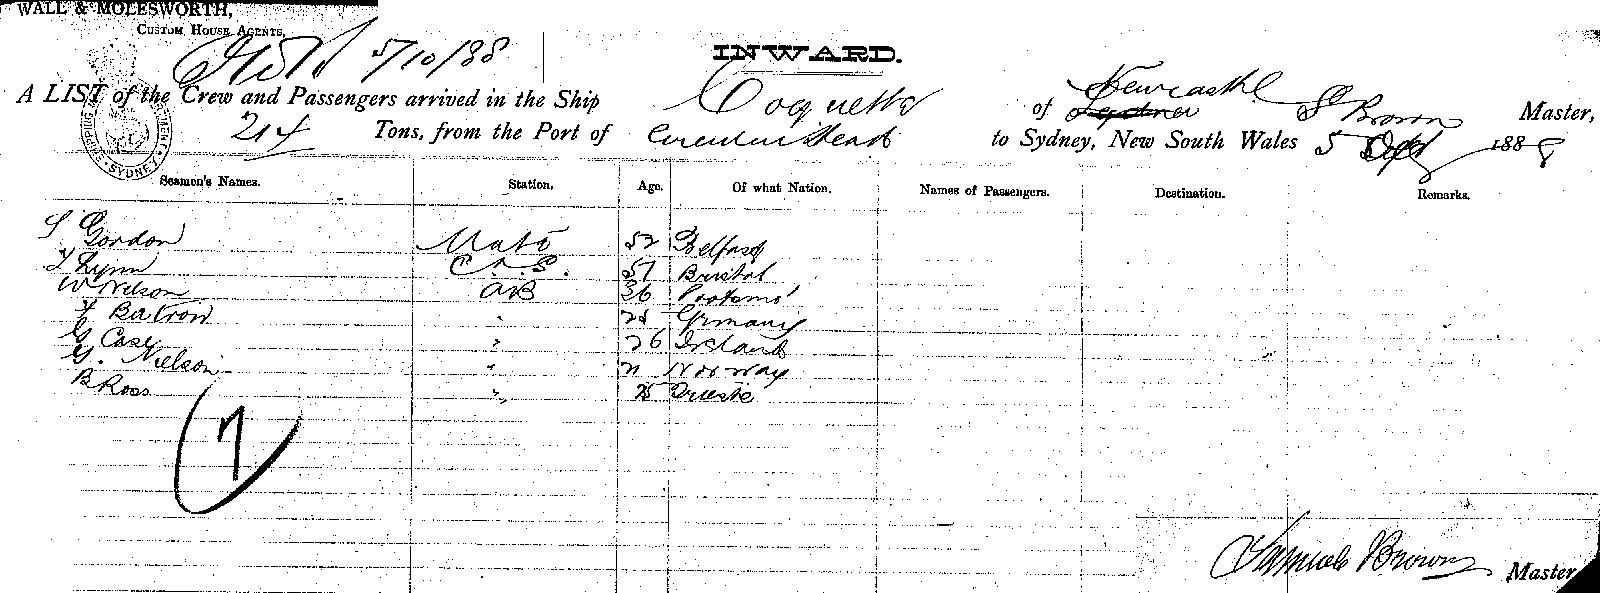 WALL & MOLESWORTH,
CUSTOM HOUSE AGENTS,
5/10/88
INWARD.
A LIST of the Crew and Passengers arrived in the Ship Coquette of Newcastle S Brown Master,
214 Tons, from the Port of Circular Head to Sydney, New South Wales 5 Oct 1888
SHIPPING SYDNEY
Seamen's Names. Station. Age. Of what Nation. Names of Passengers. Destination. Remarks.
S Gordon Mate 52 Belfast
Lynn 57 Bristol
W Nelson AB 36
Germany
G Case " 26 Ireland
G. Nielson " Norway
B Ross " 25 Trieste
7
Samuel Brown Master